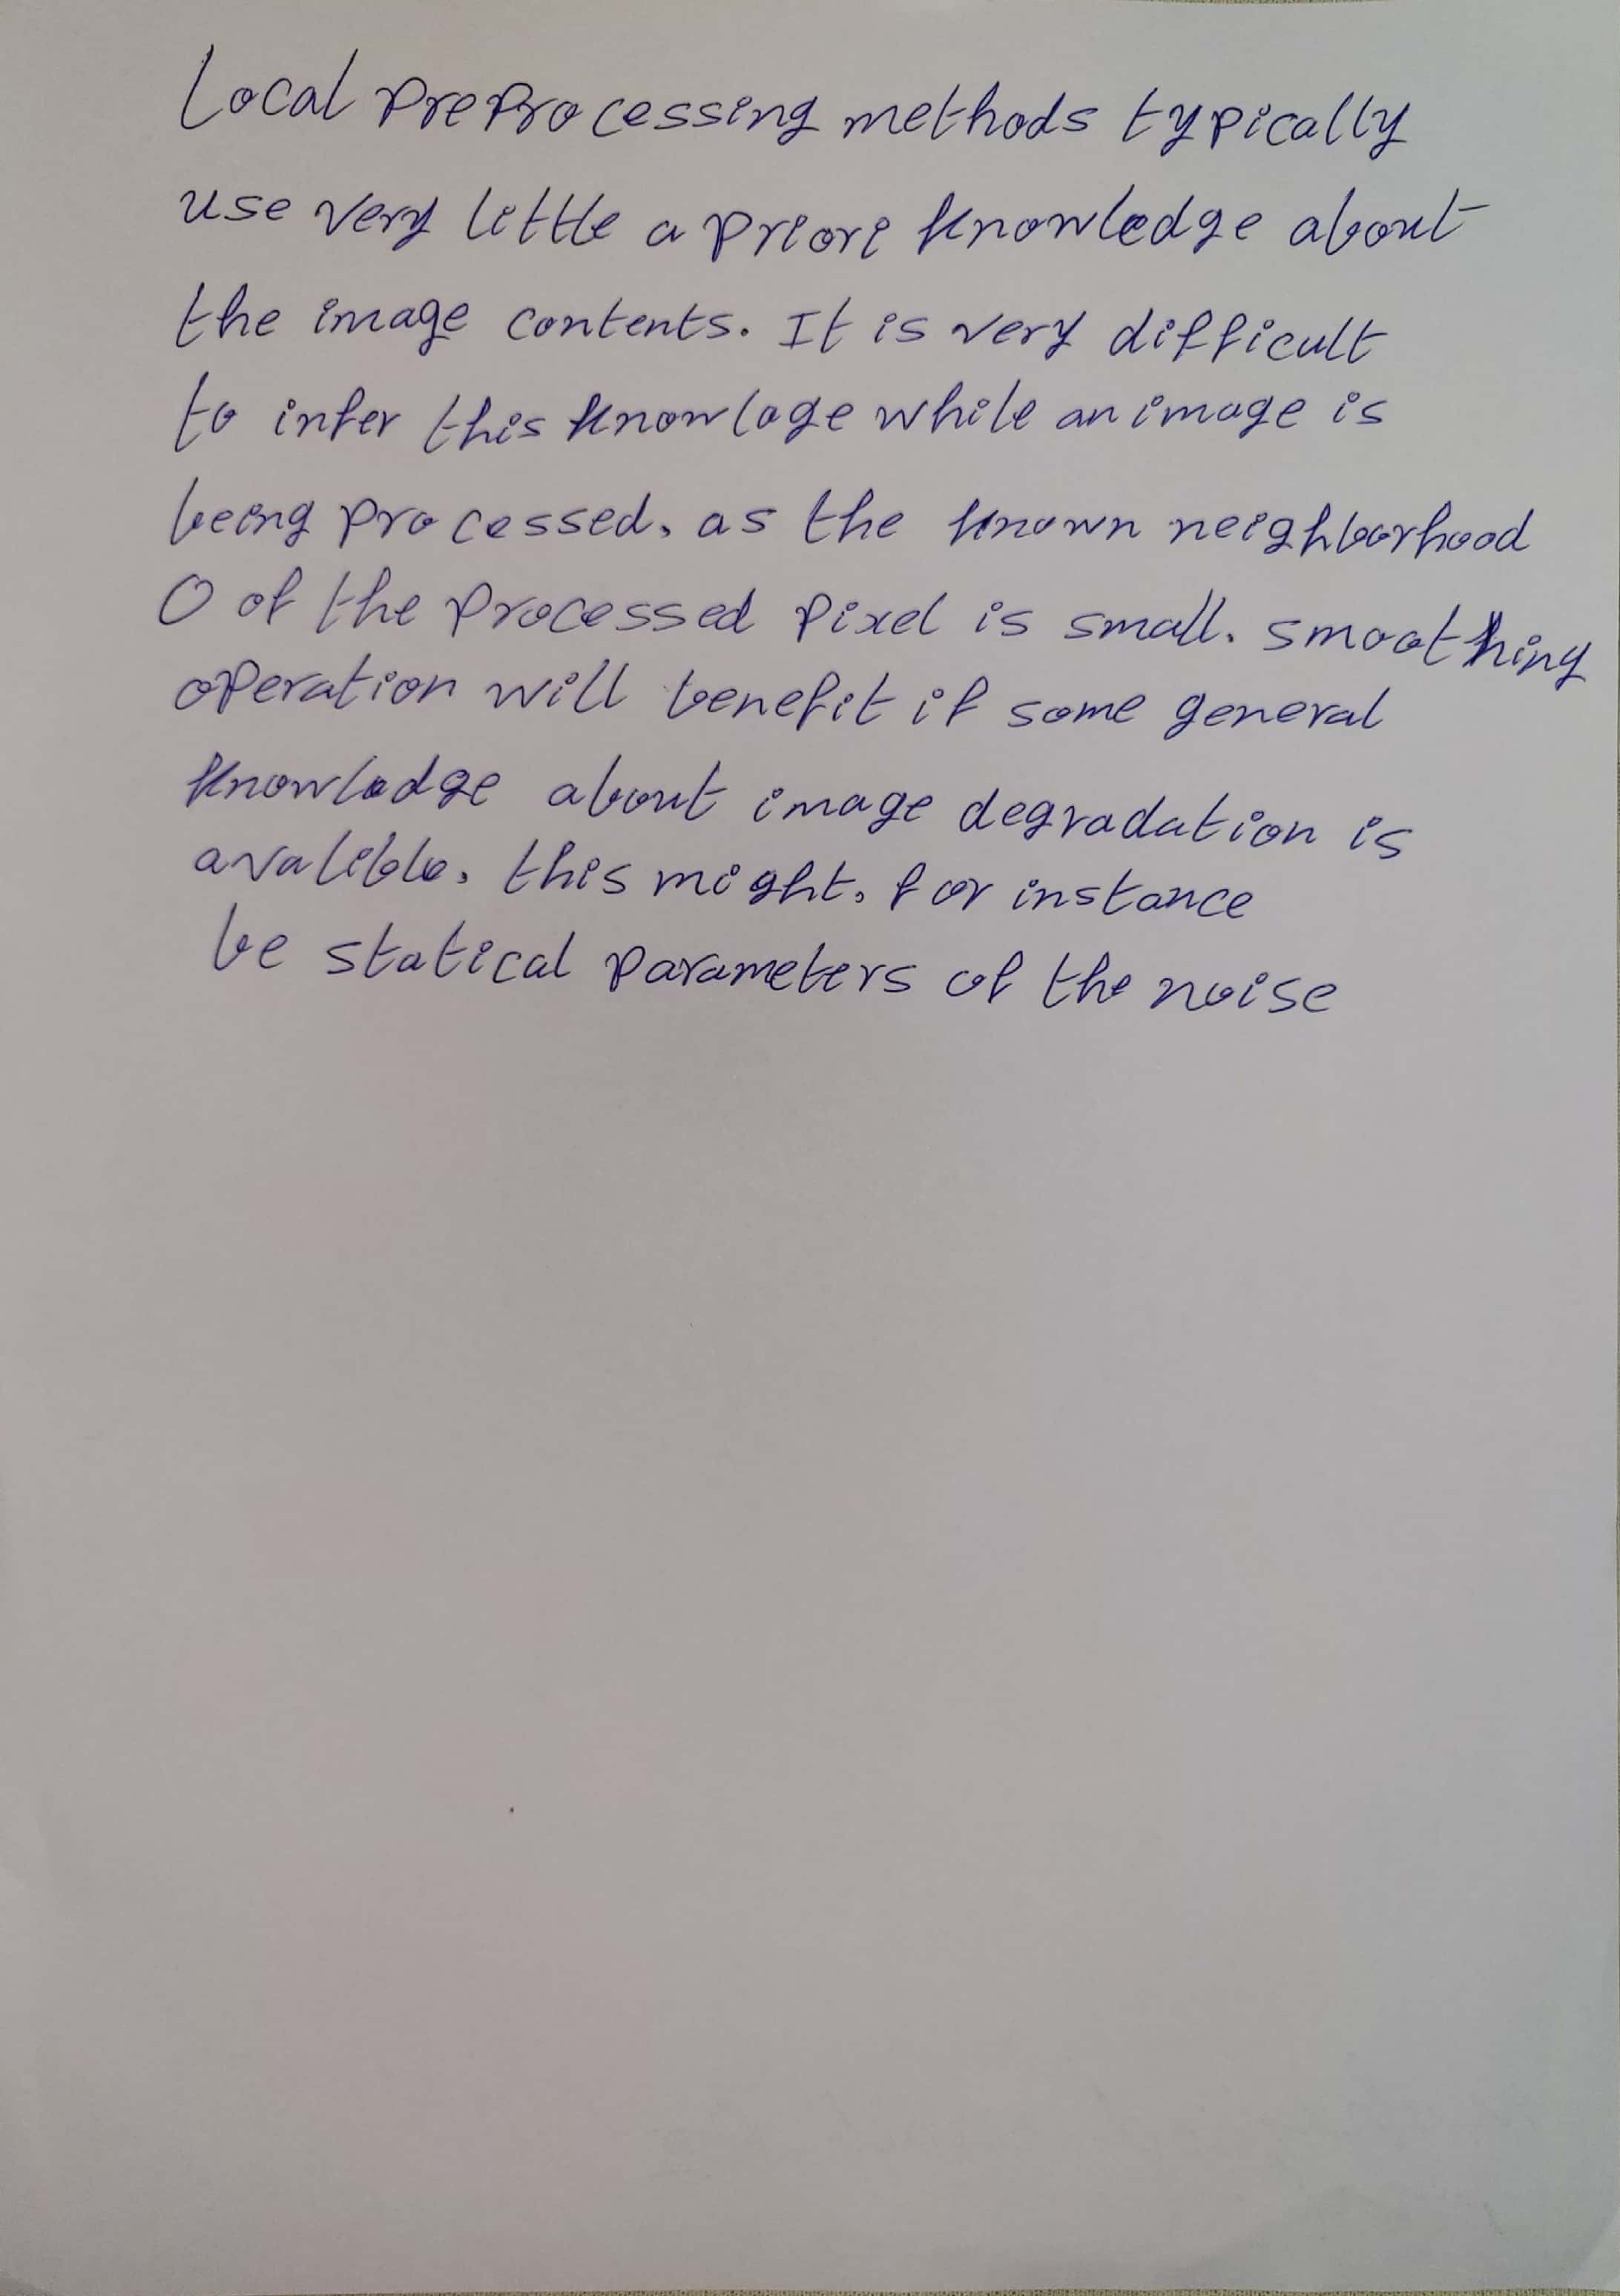 Local preprocessing methods typically
use very little a priori knowledge about
the image contents. It is very difficult
to infer this knowlage while an image is
being processed, as the known neighborhood
O of the processed pixel is small. smoothing
operation will benefit if some general
knowladge about image degradation is
avalible, this might, for instance
be statical parameters of the noise